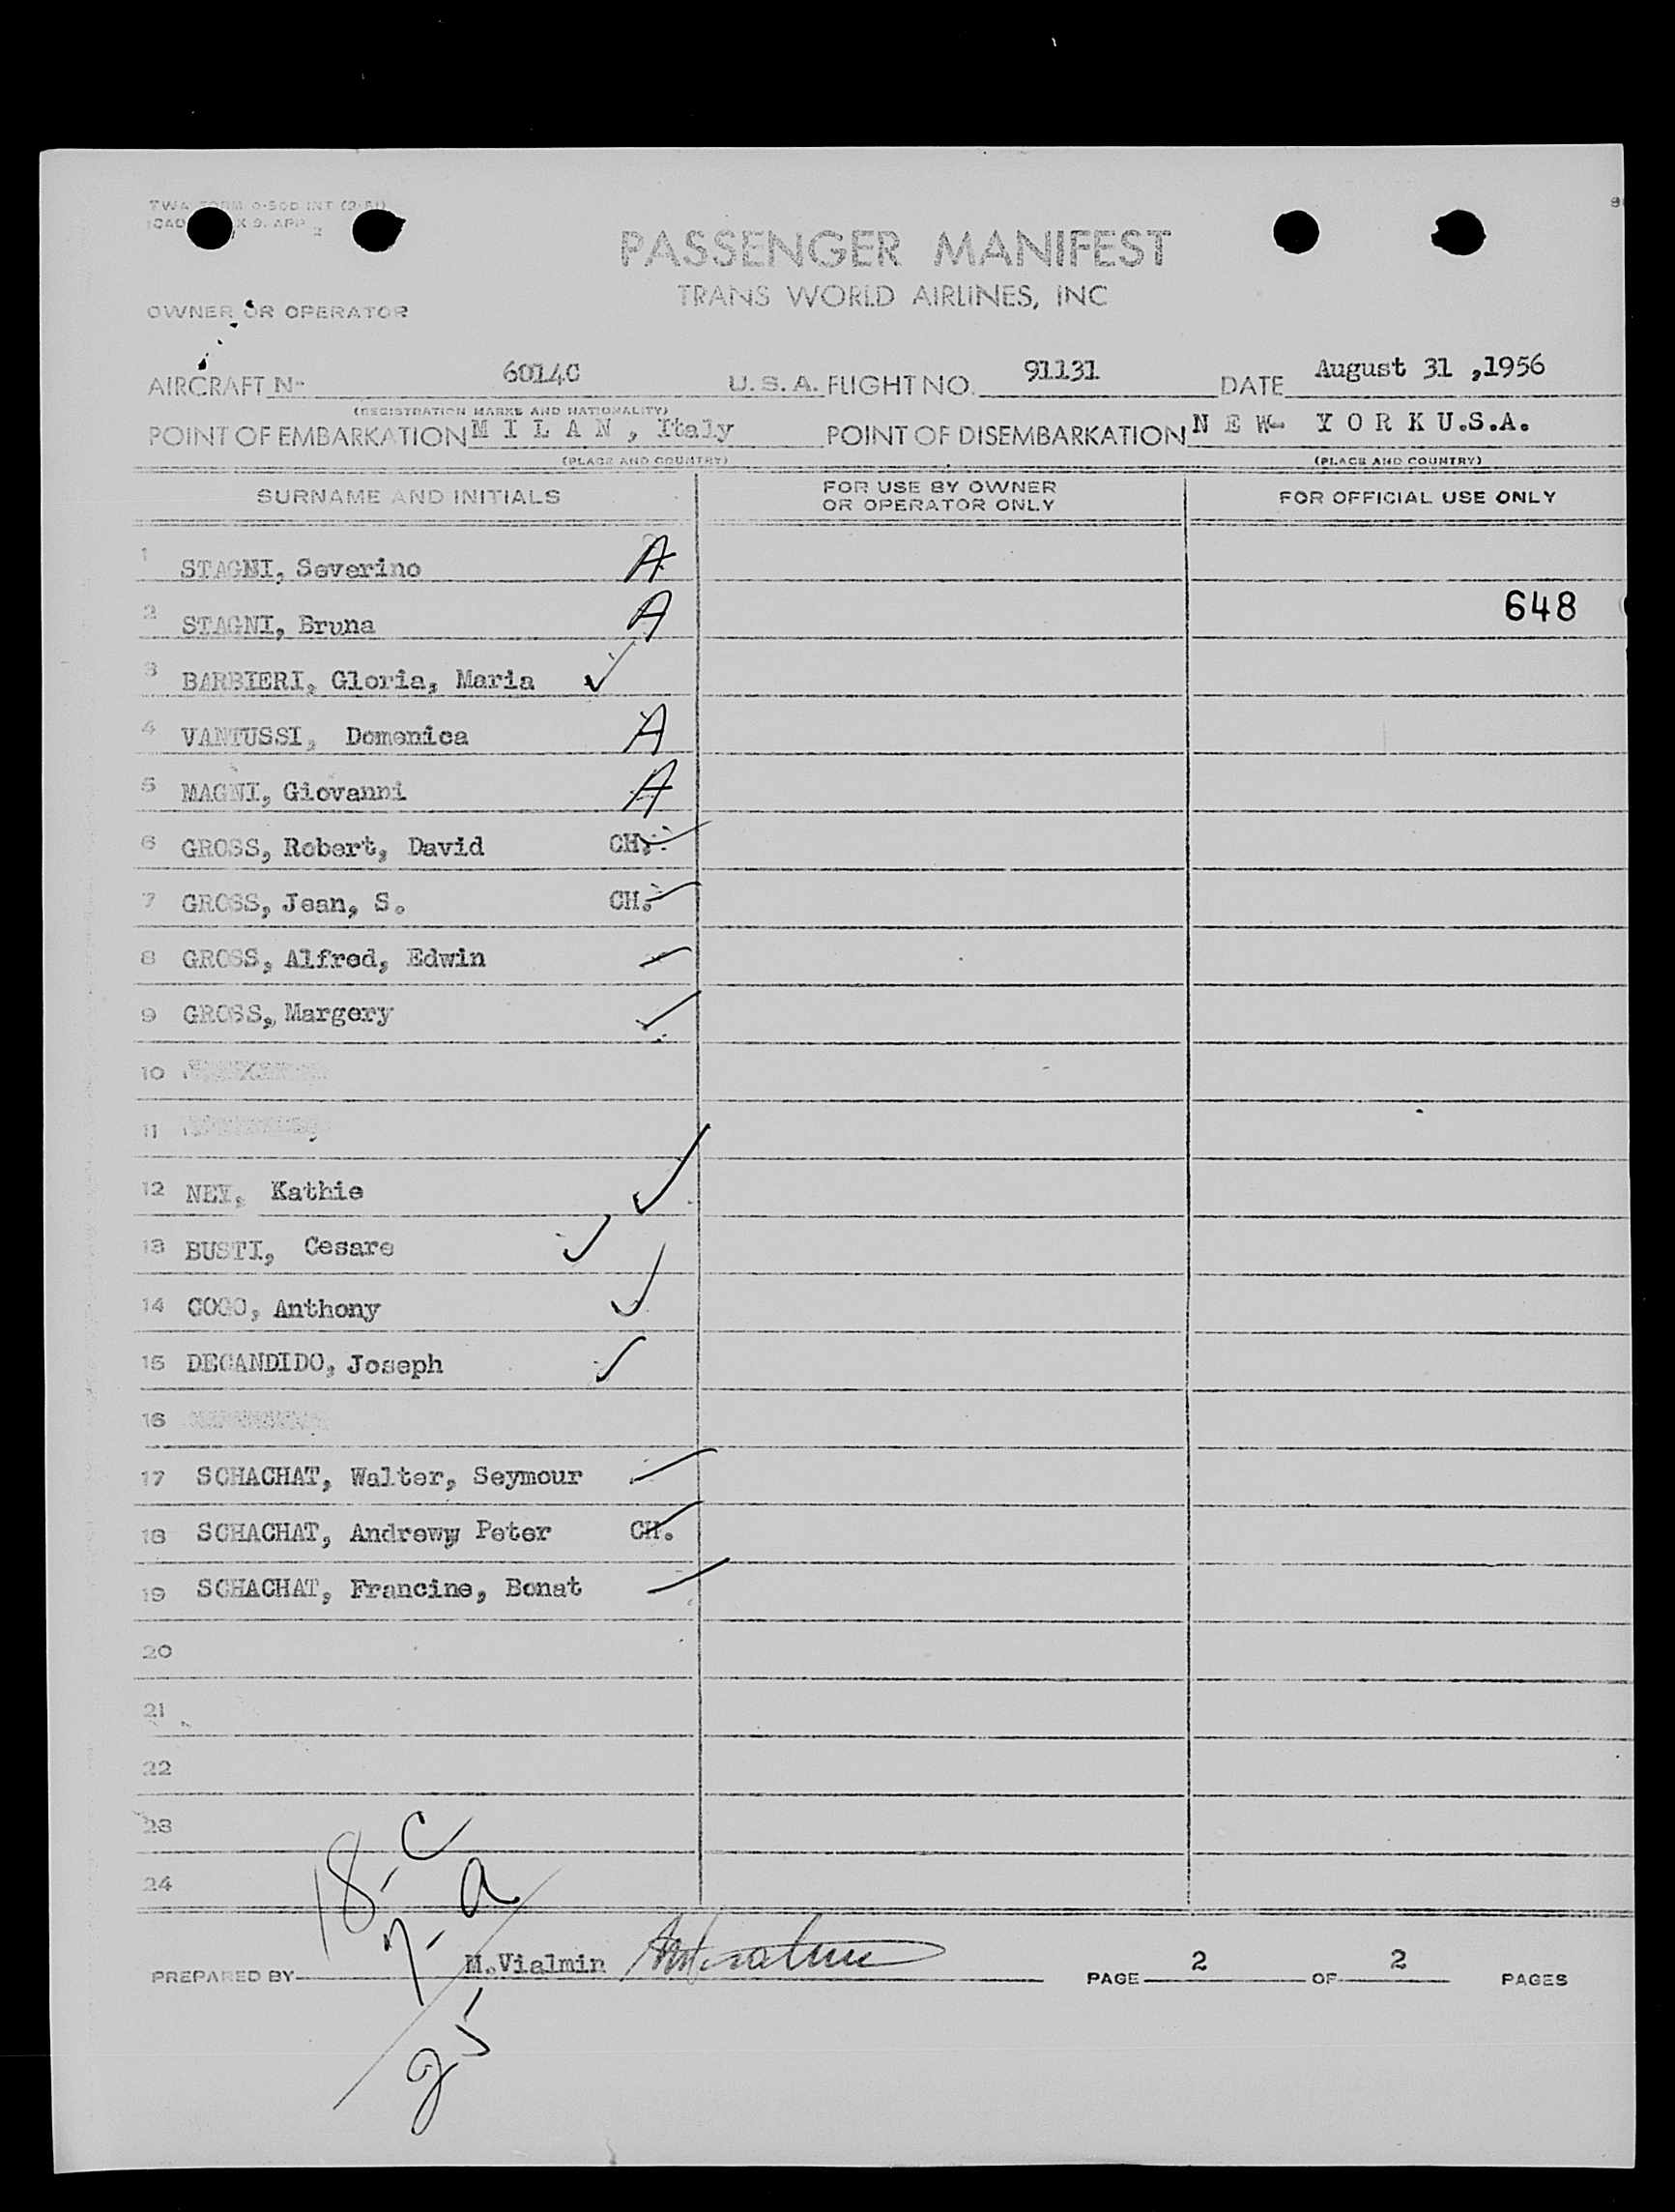 TWA FORM O-50D INT (2-51)
PASSENGER MANIFEST
TRANS WORLD AIRLINES, INC
OWNER OR OPERATOR
AIRCRAFT No 6014C U.S.A. FLIGHT NO. 91131 DATE August 31 ,1956
(REGISTRATION MARKS AND NATIONALITY)
POINT OF EMBARKATION M I L A N , Italy POINT OF DISEMBARKATION N E W- Y O R K U.S.A.
(PLACE AND COUNTRY) (PLACE AND COUNTRY)
SURNAME AND INITIALS FOR USE BY OWNER OR OPERATOR ONLY FOR OFFICIAL USE ONLY
1 STAGNI, Severino A
648
2 STAGNI, Bruna A
3 BARBIERI, Gloria, Maria ✓
4 VANTUSSI, Domenica A
5 MAGNI, Giovanni A
6 GROSS, Robert, David CH. ✓
7 GROSS, Jean, S. CH. ✓
8 GROSS, Alfred, Edwin ✓
9 GROSS, Margery ✓
10
11
12 NEY, Kathie ✓
13 BUSTI, Cesare ✓
14 COCO, Anthony ✓
15 DECANDIDO, Joseph ✓
16
17 SCHACHAT, Walter, Seymour ✓
18 SCHACHAT, Andrewy Peter CH. ✓
19 SCHACHAT, Francine, Bonat ✓
20
21
22
23
24
18- C
7- a
25
PREPARED BY M.Vialmin PAGE 2 OF 2 PAGES